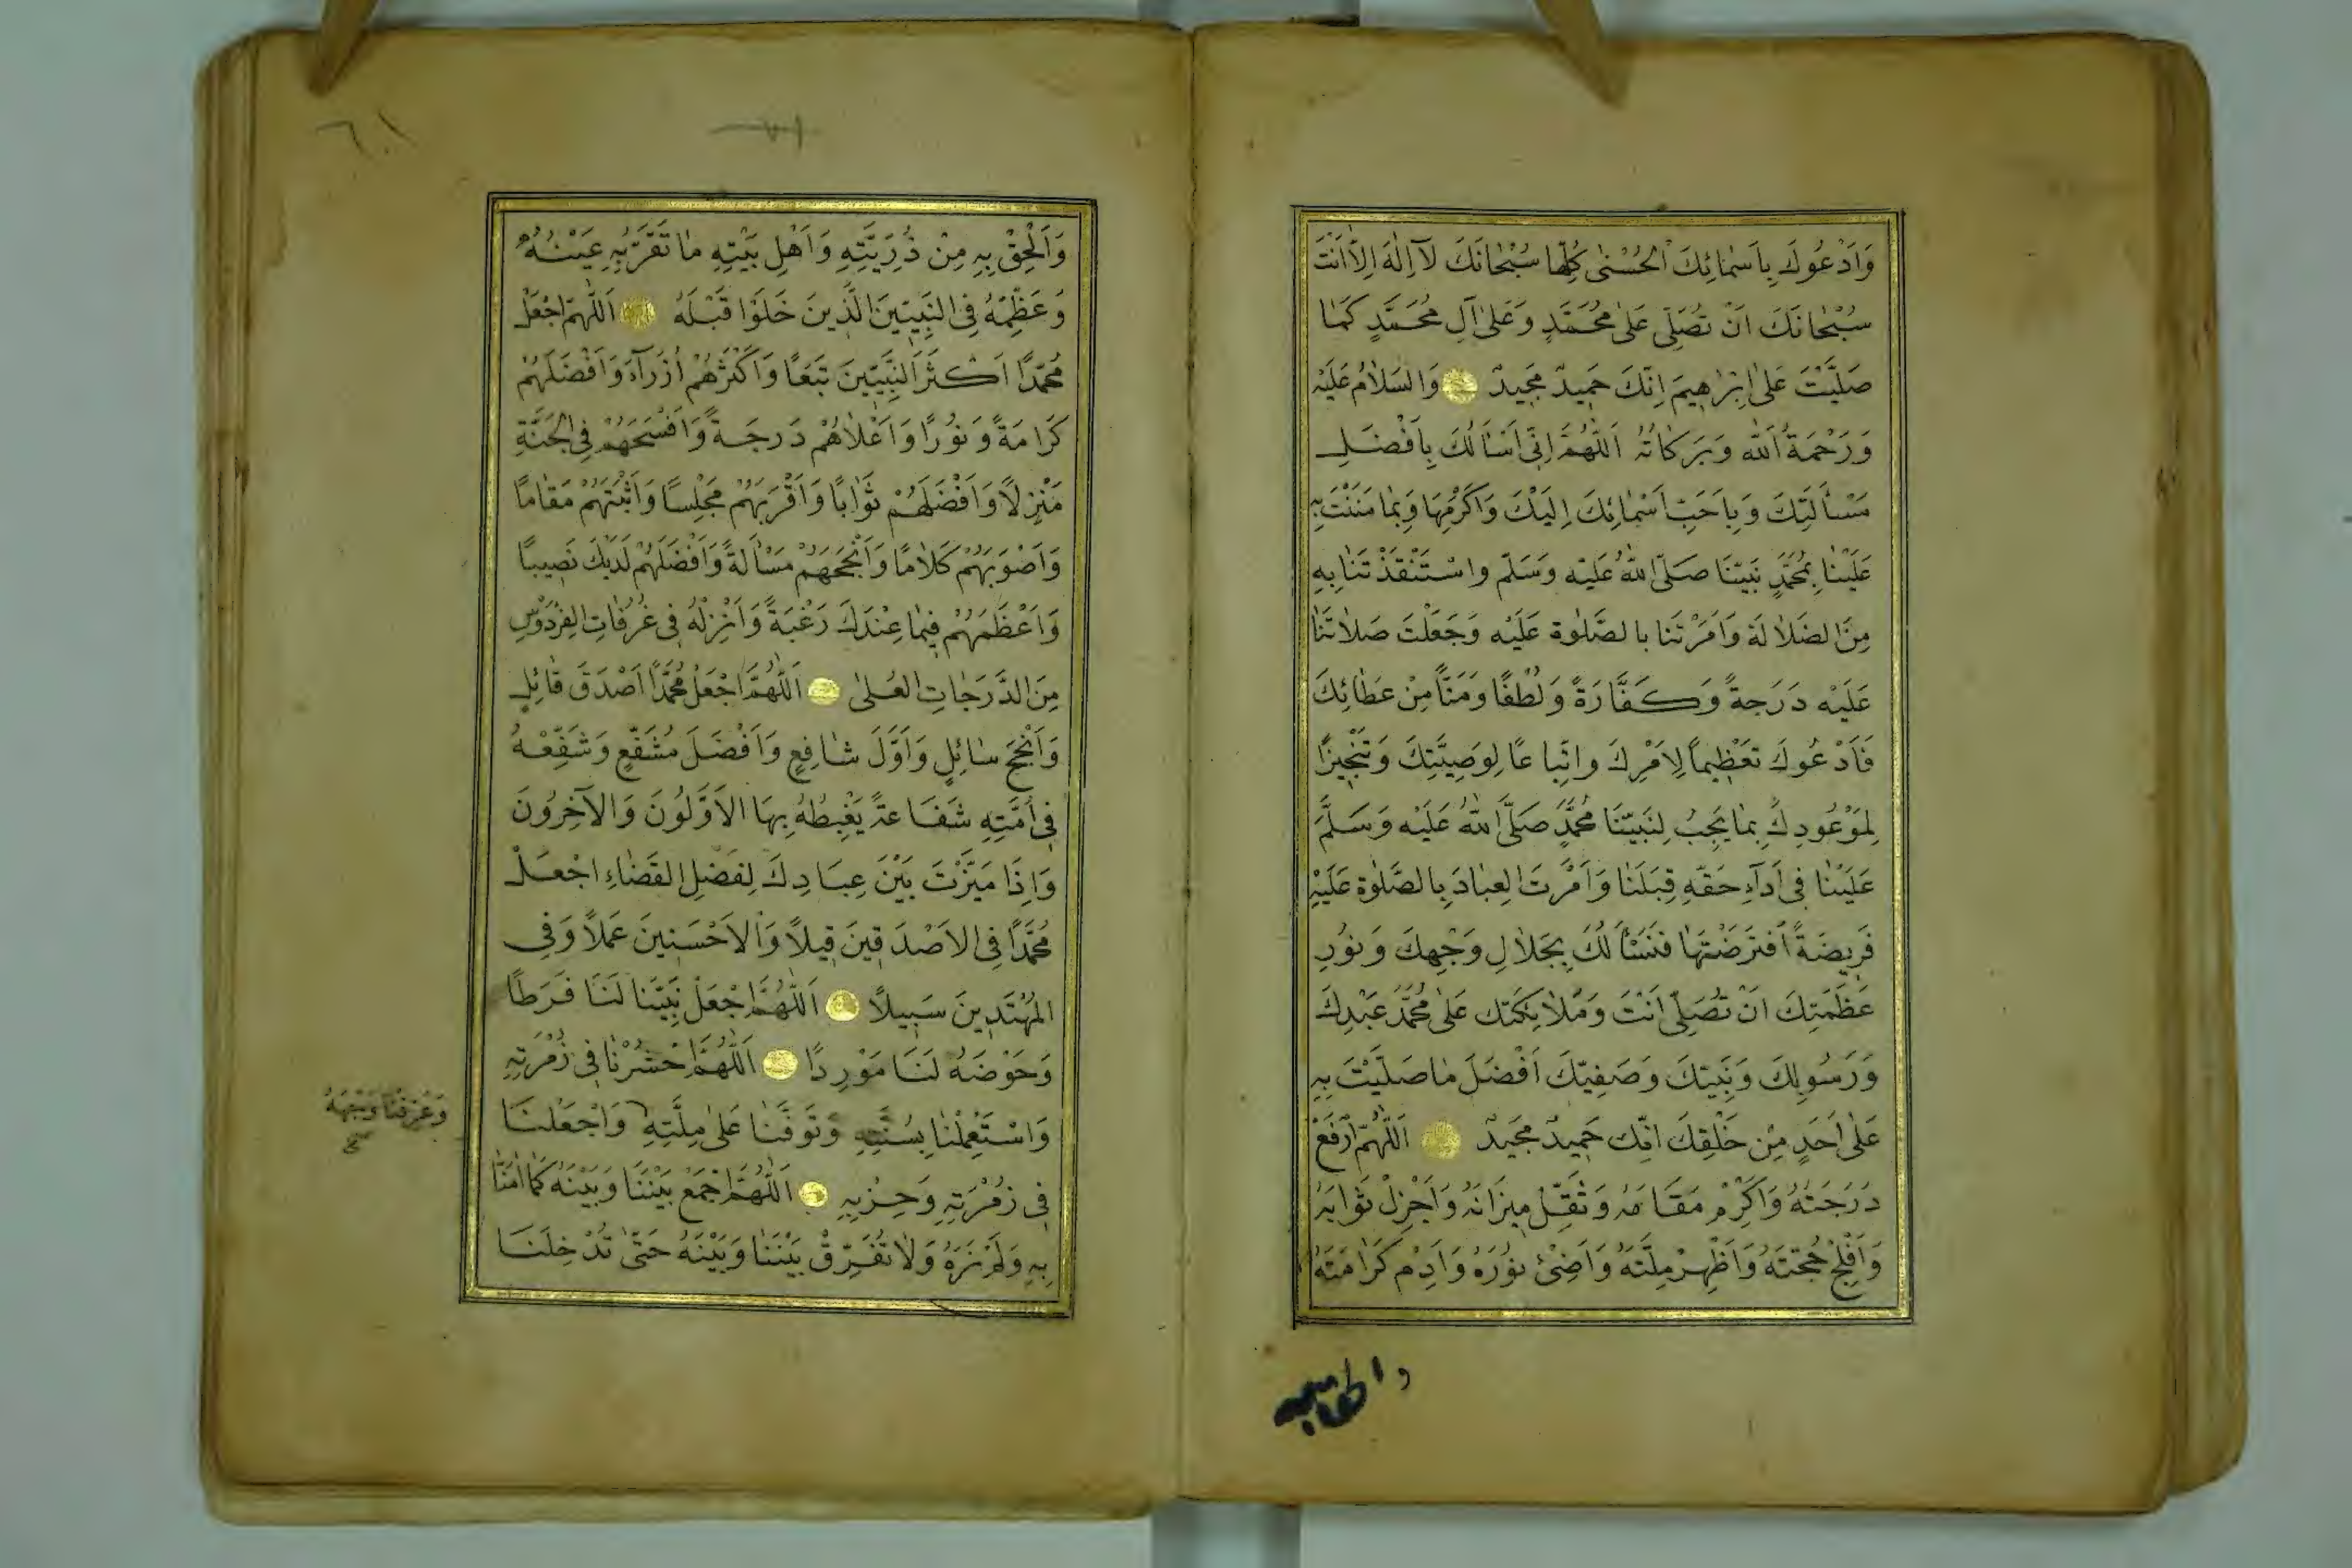 وَاَدْعُوكَ بِاَسْمٰائِكَ الْحُسْنٰى كُلِّهٰا سُبْحٰانَكَ لَآ اِلٰهَ اِلَّا اَنْتَ
سُبْحٰانَكَ اَنْ تُصَلِّىَ عَلٰى مُحَمَّدٍ وَعَلٰى آلِ مُحَمَّدٍ كَمٰا
صَلَيَّتَ عَلٰى اِبْرٰاهِيمَ اِنَّكَ حَمِيدٌ مَجِيدٌ وَالسَلاٰمُ عَلَيْهِ
وَرَحْمَةُ اَللّٰهِ وَبَرَكٰاتُهُ اَللّٰهُمَّ اِنِّى اَسْاَلُكَ بِاَفْضَلِ
مَسْأَلَتِكَ وَبِاَحَبِّ اَسْمٰائِكَ اِلَيْكَ وَاَكْرَمِهَا وَبِمٰا مَنَنْتَ بِهِ
عَلَيْنٰا بِمُحَمَّدٍ نَبِيِّنَا صَلَّى اللّٰهُ عَلَيْهِ وَسَلَّمَ وَاسْتَنْقَذْتَنٰا بِهِ
مِنَ الضَلاٰلَةِ وَاَمَرْتَنٰا بِالصَّلٰوةِ عَلَيْهِ وَجَعَلْتَ صَلاٰتَنٰا
عَلَيْهِ دَرَجَةً وَكَفَّارَةً وَلُطْفًا وَمَنًّا مِنْ عَطٰائِكَ
فَاَدْعُوكَ تَعْظِيماً لِاَمْرِكَ وَاتِّبَاعًا لِوَصِيَّتِكَ وَتَنْجِيزًا
لِمَوْعُودِكَ بِمٰا يَجِبُ لِنَبِيِّنَا مُحَمَّدٍ صَلَّى اللّٰهُ عَلَيْهِ وَسَلَّمَ
عَلَيْنٰا فِى اَدَآءِ حَقِّهِ قِبَلَنٰا وَاَمَرْتَ الْعِبٰادَ بِالصَّلٰوةِ عَلَيْهِ
فَرِيضَةً افْتَرَضْتَهٰا فَنَسْأَلُكَ بِجَلاٰلِ وَجْهِكَ وَنُورِ
عَظَمَتِكَ اَنْ تُصَلِّىَ اَنْتَ وَمَلاٰئِكَتُكَ عَلٰى مُحَمَّدٍ عَبْدِكَ
وَرَسُولِكَ وَنَبِيِّكَ وَصَفِيِّكَ اَفْضَلَ مٰا صَلَّيْتَ بِهِ
عَلٰى اَحَدٍ مِنْ خَلْقِكَ اِنَّكَ حَمِيدٌ مَجِيدٌ اَللّٰهُمَّ ارْفَعْ
دَرَجَتَهُ وَاَكْرِمْ مَقَامَهُ وَثَقِّلْ مِيزَانَهُ وَاَجْزِلْ ثَوَابَهُ
وَاَفْلِجْ حُجَّتَهُ وَاَظْهِرْ مِلَّتَهُ وَاَضِئْ نُورَهُ وَاَدِمْ كَرَامَتَهُ
٦٠١
وَاَلْحِقْ بِهِ مِنْ ذُرِّيَّتِهِ وَاَهْلِ بَيْتِهِ مٰا تَقَرُّ بِهِ عَيْنُهُ
وَعَظِّمْهُ فِى النَّبِيِّينَ الَّذِينَ خَلَوْا قَبْلَهُ اَللّٰهُمَّ اجْعَلْ
مُحَمَّدًا اَكْثَرَ النَّبِيِّينَ تَبَعًا وَاَكْثَرَهُمْ اُزَرَآءَ وَاَفْضَلَهُمْ
كَرَامَةً وَنُورًا وَاَعْلاٰهُمْ دَرَجَةً وَاَفْسَحَهُمْ فِى الْجَنَّةِ
مَنْزِلاً وَاَفْضَلَهُمْ ثَوٰابًا وَاَقْرَبَهُمْ مَجْلِسًا وَاَثْبَتَهُمْ مَقٰامًا
وَاَصْوَبَهُمْ كَلاٰمًا وَاَنْجَحَهُمْ مَسْأَلَةً وَاَفْضَلَهُمْ لَدَيْكَ نَصِيبًا
وَاَعْظَمَهُمْ فِيمٰا عِنْدَكَ رَغْبَةً وَاَنْزِلْهُ فِى غُرُفٰاتِ الْفِرْدَوْسِ
مِنَ الدَّرَجٰاتِ الْعُلٰى اَللّٰهُمَّ اجْعَلْ مُحَمَّدًا اَصْدَقَ قٰائِلٍ
وَاَنْجَحَ سٰائِلٍ وَاَوَّلَ شٰافِعٍ وَاَفْضَلَ مُشَفَّعٍ وَشَفِّعْهُ
فِى اُمَّتِهِ شَفَاعَةً يَغْبِطُهُ بِهَا الْاَوَّلُونَ وَالْآخِرُونَ
وَاِذَا مَيَّزْتَ بَيْنَ عِبَادِكَ لِفَصْلِ الْقَضٰاءِ اجْعَلْ
مُحَمَّدًا فِى الْاَصْدَقِينَ قِيلاً وَالْاَحْسَنِينَ عَمَلاً وَفِى
الْمُهْتَدِينَ سَبِيلاً اَللّٰهُمَّ اجْعَلْ نَبِيَّنَا لَنَا فَرَطًا
وَحَوْضَهُ لَنَا مَوْرِدًا اَللّٰهُمَّ احْشُرْنٰا فِى زُمْرَتِهِ
وَاسْتَعْمِلْنٰا بِسُنَّتِهِ وَتَوَفَّنٰا عَلٰى مِلَّتِهِ وَاجْعَلْنَا
وَعَرِّفْنَا وَجْهَهُ
صح
فِى زُمْرَتِهِ وَحِزْبِهِ اَللّٰهُمَّ اجْمَعْ بَيْنَنَا وَبَيْنَهُ كَمٰا اٰمَنَّا
بِهِ وَلَمْ نَرَهُ وَلاٰ تُفَرِّقْ بَيْنَنٰا وَبَيْنَهُ حَتّٰى تُدْخِلَنَا